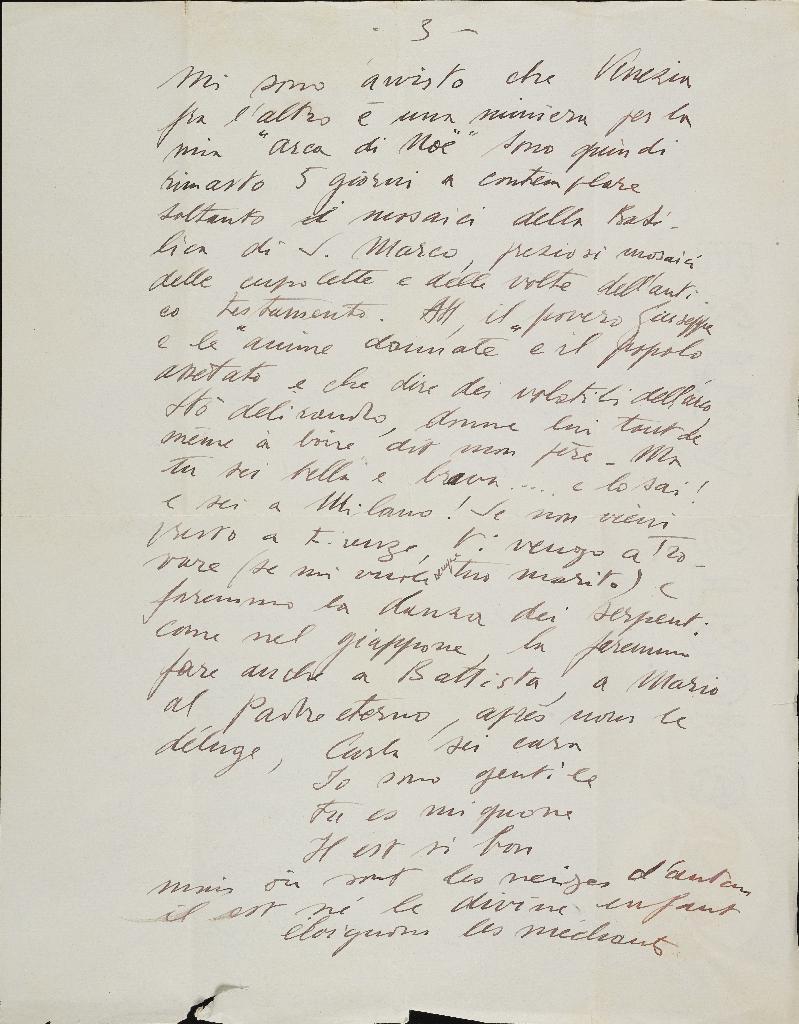 - 3 -
Mi sono avvisto che Venezia
fra l'altro è una miniera per la
mia "arca di Noë" sono quindi
rimasto 5 giorni a contemplare
soltanto i mosaici della Basi-
lica di S. Marco, preziosi mosaici
delle cupolette e delle volte dell'anti
co testamento. Ah, il "povero Giuseppe
e le "anime dannate e il popolo
assetato e che dire dei volatili dell'arca
Stò delirando, donne lui tout de
même a boire dit mon père - Ma
tu sei bella e brava .... e lo sai!
e sei a Milano! Se non vieni
presto a Firenze, Vi vengo a Tro-
vare (se mi vuoi tuo marito) e
faremmo la danza dei serpenti
come nel giappone, la faremmo
fare anche a Battista, a Mario
al Padre eterno, après nous le
déluge, Carla sei cara
Io sono gentile
Tu es mignonne
Il est si bon
mais où sont les neiges d'antan
il est né le divine enfant
éloignons les méchants